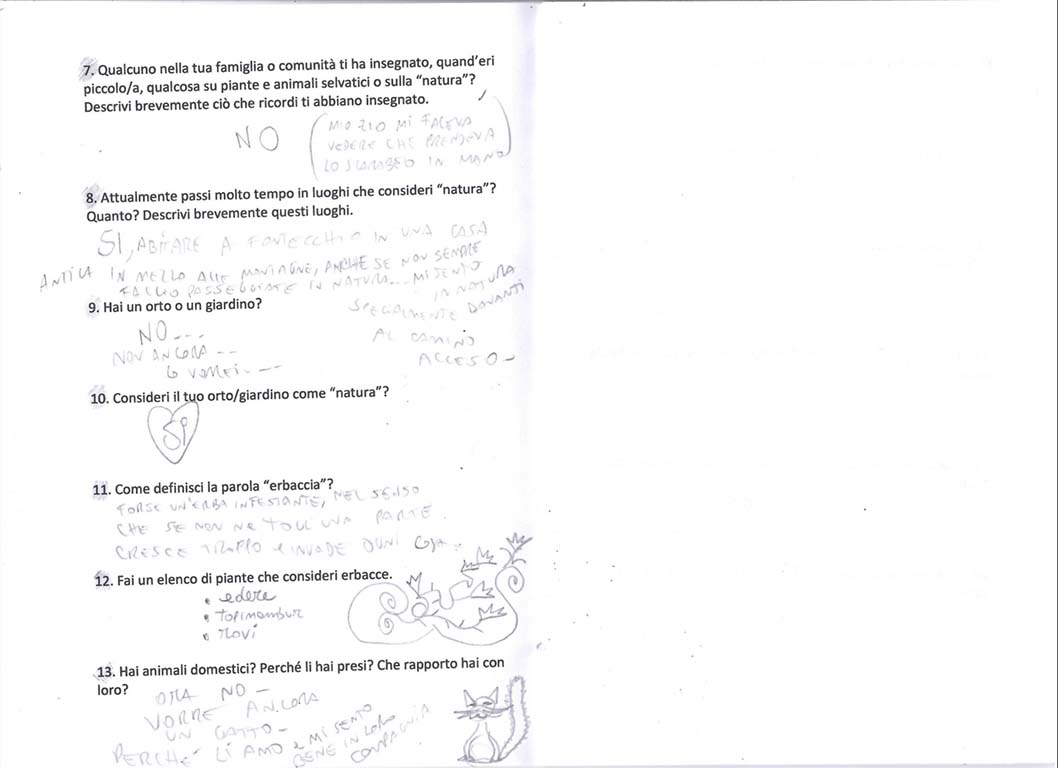 7. Qualcuno nella tua famiglia o comunità ti ha insegnato, quand'eri
piccolo/a, qualcosa su piante e animali selvatici o sulla "natura"?
Descrivi brevemente ciò che ricordi ti abbiano insegnato.
NO
(MIO ZIO MI FACEVA
VEDERE CHE PRENDEVA
LO SCARABEO IN MANO)
8. Attualmente passi molto tempo in luoghi che consideri "natura"?
Quanto? Descrivi brevemente questi luoghi.
SI, ABITARE A FONTECCHIO IN UNA CASA
ANTICA IN MEZZO ALLE MONTAGNE, ANCHE SE NON SEMPRE
FACCIO PASSEGGIATE IN NATURA... MI SENTO
IN NATURA
SPECIALMENTE DAVANTI
AL CAMINO
ACCESO -
9. Hai un orto o un giardino?
NO ---
NON ANCORA --
LO VORREI ---
10. Consideri il tuo orto/giardino come "natura"?
SI
11. Come definisci la parola "erbaccia"?
FORSE UN'ERBA INFESTANTE, NEL SENSO
CHE SE NON NE TOGLI UNA PARTE
CRESCE TROPPO E INVADE OGNI COSA
12. Fai un elenco di piante che consideri erbacce.
• edere
• TOPINAMBUR
• ROVI
13. Hai animali domestici? Perché li hai presi? Che rapporto hai con
loro?
ORA NO -
VORREI ANCORA
UN GATTO -
PERCHÉ LI AMO E MI SENTO
BENE IN LORO
COMPAGNIA